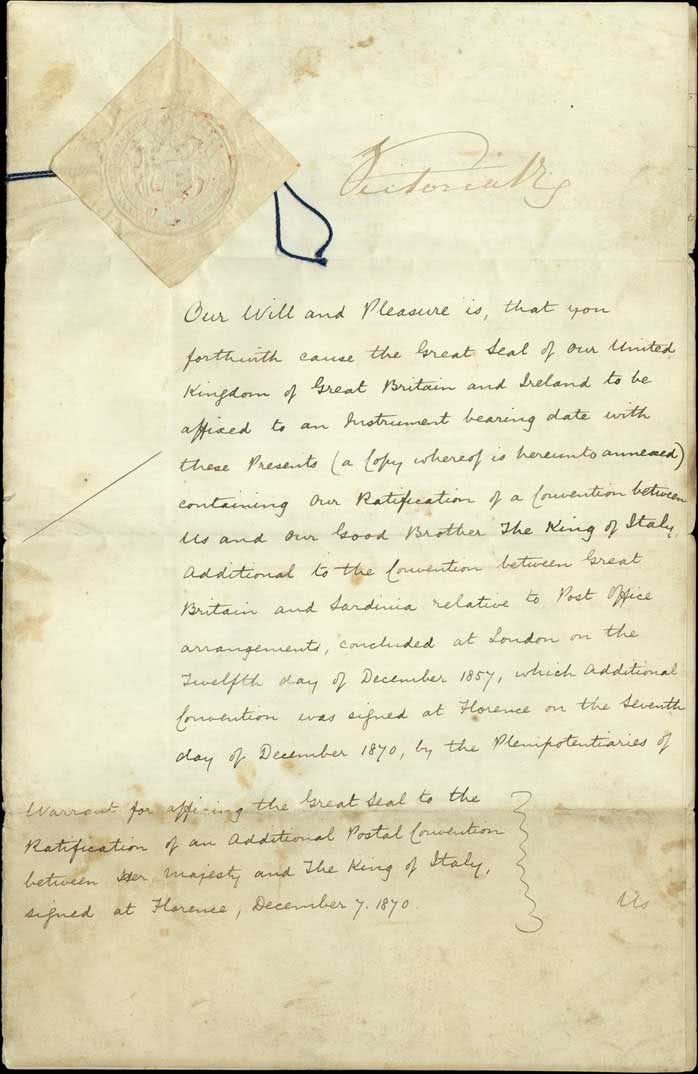 Victoria Rg
Our Will and Pleasure is, that you
forthwith cause the Great Seal of Our United
Kingdom of Great Britain and Ireland to be
affixed to an Instrument bearing date with
these Presents (a Copy whereof is hereunto annexed)
containing Our Ratification of a Convention between
Us and Our Good Brother The King of Italy,
Additional to the Convention between Great
Britain and Sardinia relative to Post Office
arrangements, concluded at London on the
Twelfth day of December 1857, which Additional
Convention was signed at Florence on the Seventh
day of December 1870, by the Plenipotentiaries of
Us
Warrant for affixing the Great Seal to the
Ratification of an Additional Postal Convention
between Her Majesty and The King of Italy,
signed at Florence, December 7. 1870.